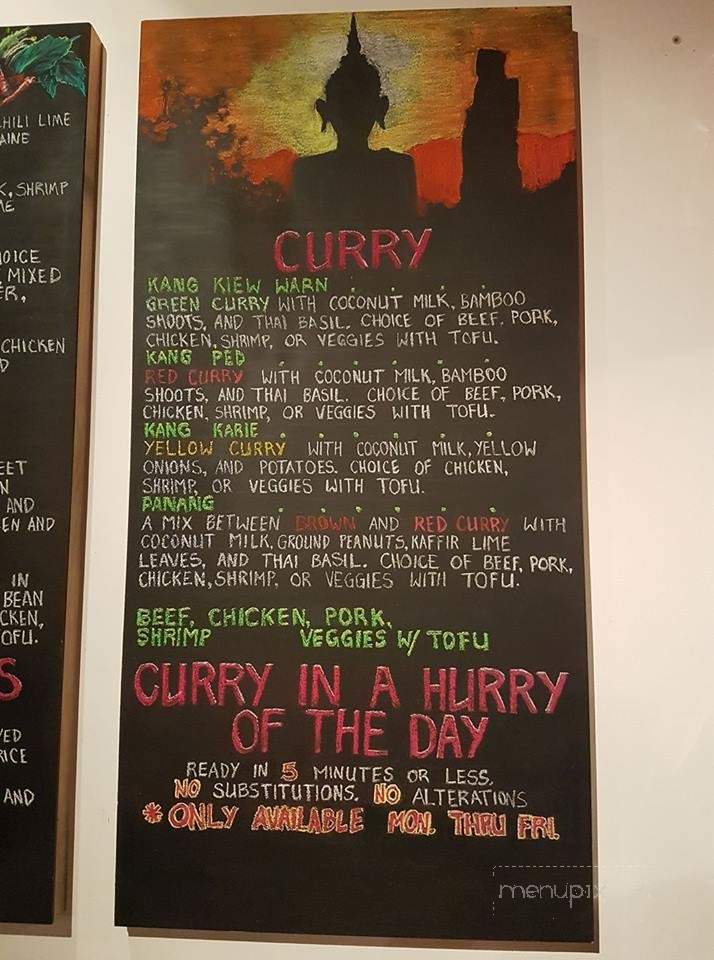 CHILI LIME
AINE
K, SHRIMP
OICE
MIXED
ER,
CHICKEN
D
EET
N
AND
EN AND
IN
BEAN
CKEN,
OFU.
S
YED
RICE
AND
CURRY
KANG KIEW WARN . . . . .
GREEN CURRY WITH COCONUT MILK, BAMBOO
SHOOTS, AND THAI BASIL. CHOICE OF BEEF, PORK,
CHICKEN, SHRIMP, OR VEGGIES WITH TOFU.
KANG PED . . . . . .
RED CURRY WITH COCONUT MILK, BAMBOO
SHOOTS, AND THAI BASIL. CHOICE OF BEEF, PORK,
CHICKEN, SHRIMP, OR VEGGIES WITH TOFU.
KANG KARIE . . . . . .
YELLOW CURRY WITH COCONUT MILK, YELLOW
ONIONS, AND POTATOES. CHOICE OF CHICKEN,
SHRIMP, OR VEGGIES WITH TOFU.
PANANG . . . . . .
A MIX BETWEEN BROWN AND RED CURRY WITH
COCONUT MILK, GROUND PEANUTS, KAFFIR LIME
LEAVES, AND THAI BASIL. CHOICE OF BEEF, PORK,
CHICKEN, SHRIMP, OR VEGGIES WITH TOFU.
BEEF, CHICKEN, PORK,
SHRIMP VEGGIES W/ TOFU
CURRY IN A HURRY
OF THE DAY
READY IN 5 MINUTES OR LESS.
NO SUBSTITUTIONS. NO ALTERATIONS
* ONLY AVAILABLE MON. THRU FRI.
menupix